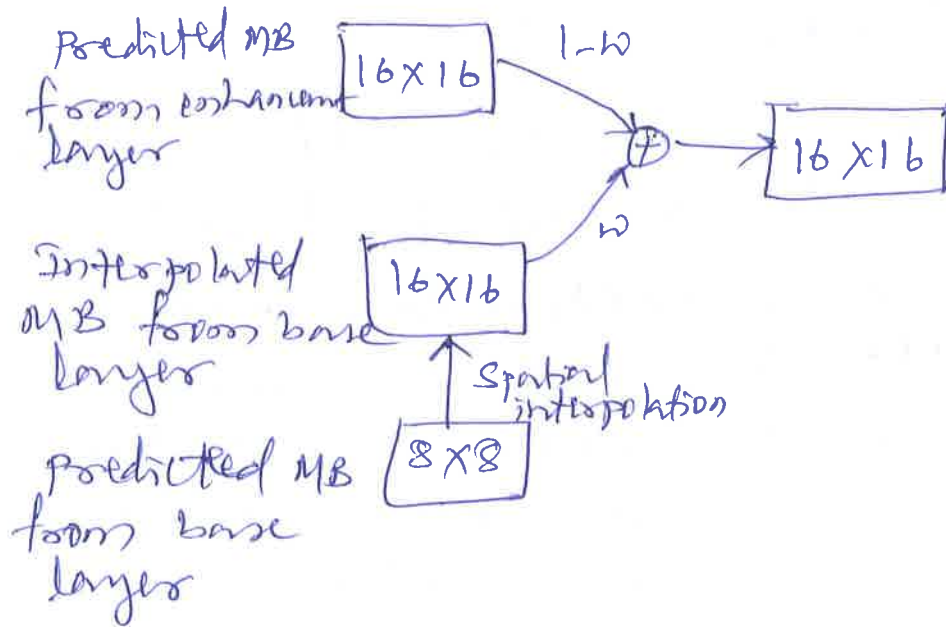 Predicted MB
from enhancement
layer
16 X 16
1-w
+
16 X 16
Interpolated
MB from base
layer
16 X 16
w
Spatial
interpolation
Predicted MB
from base
layer
8 X 8